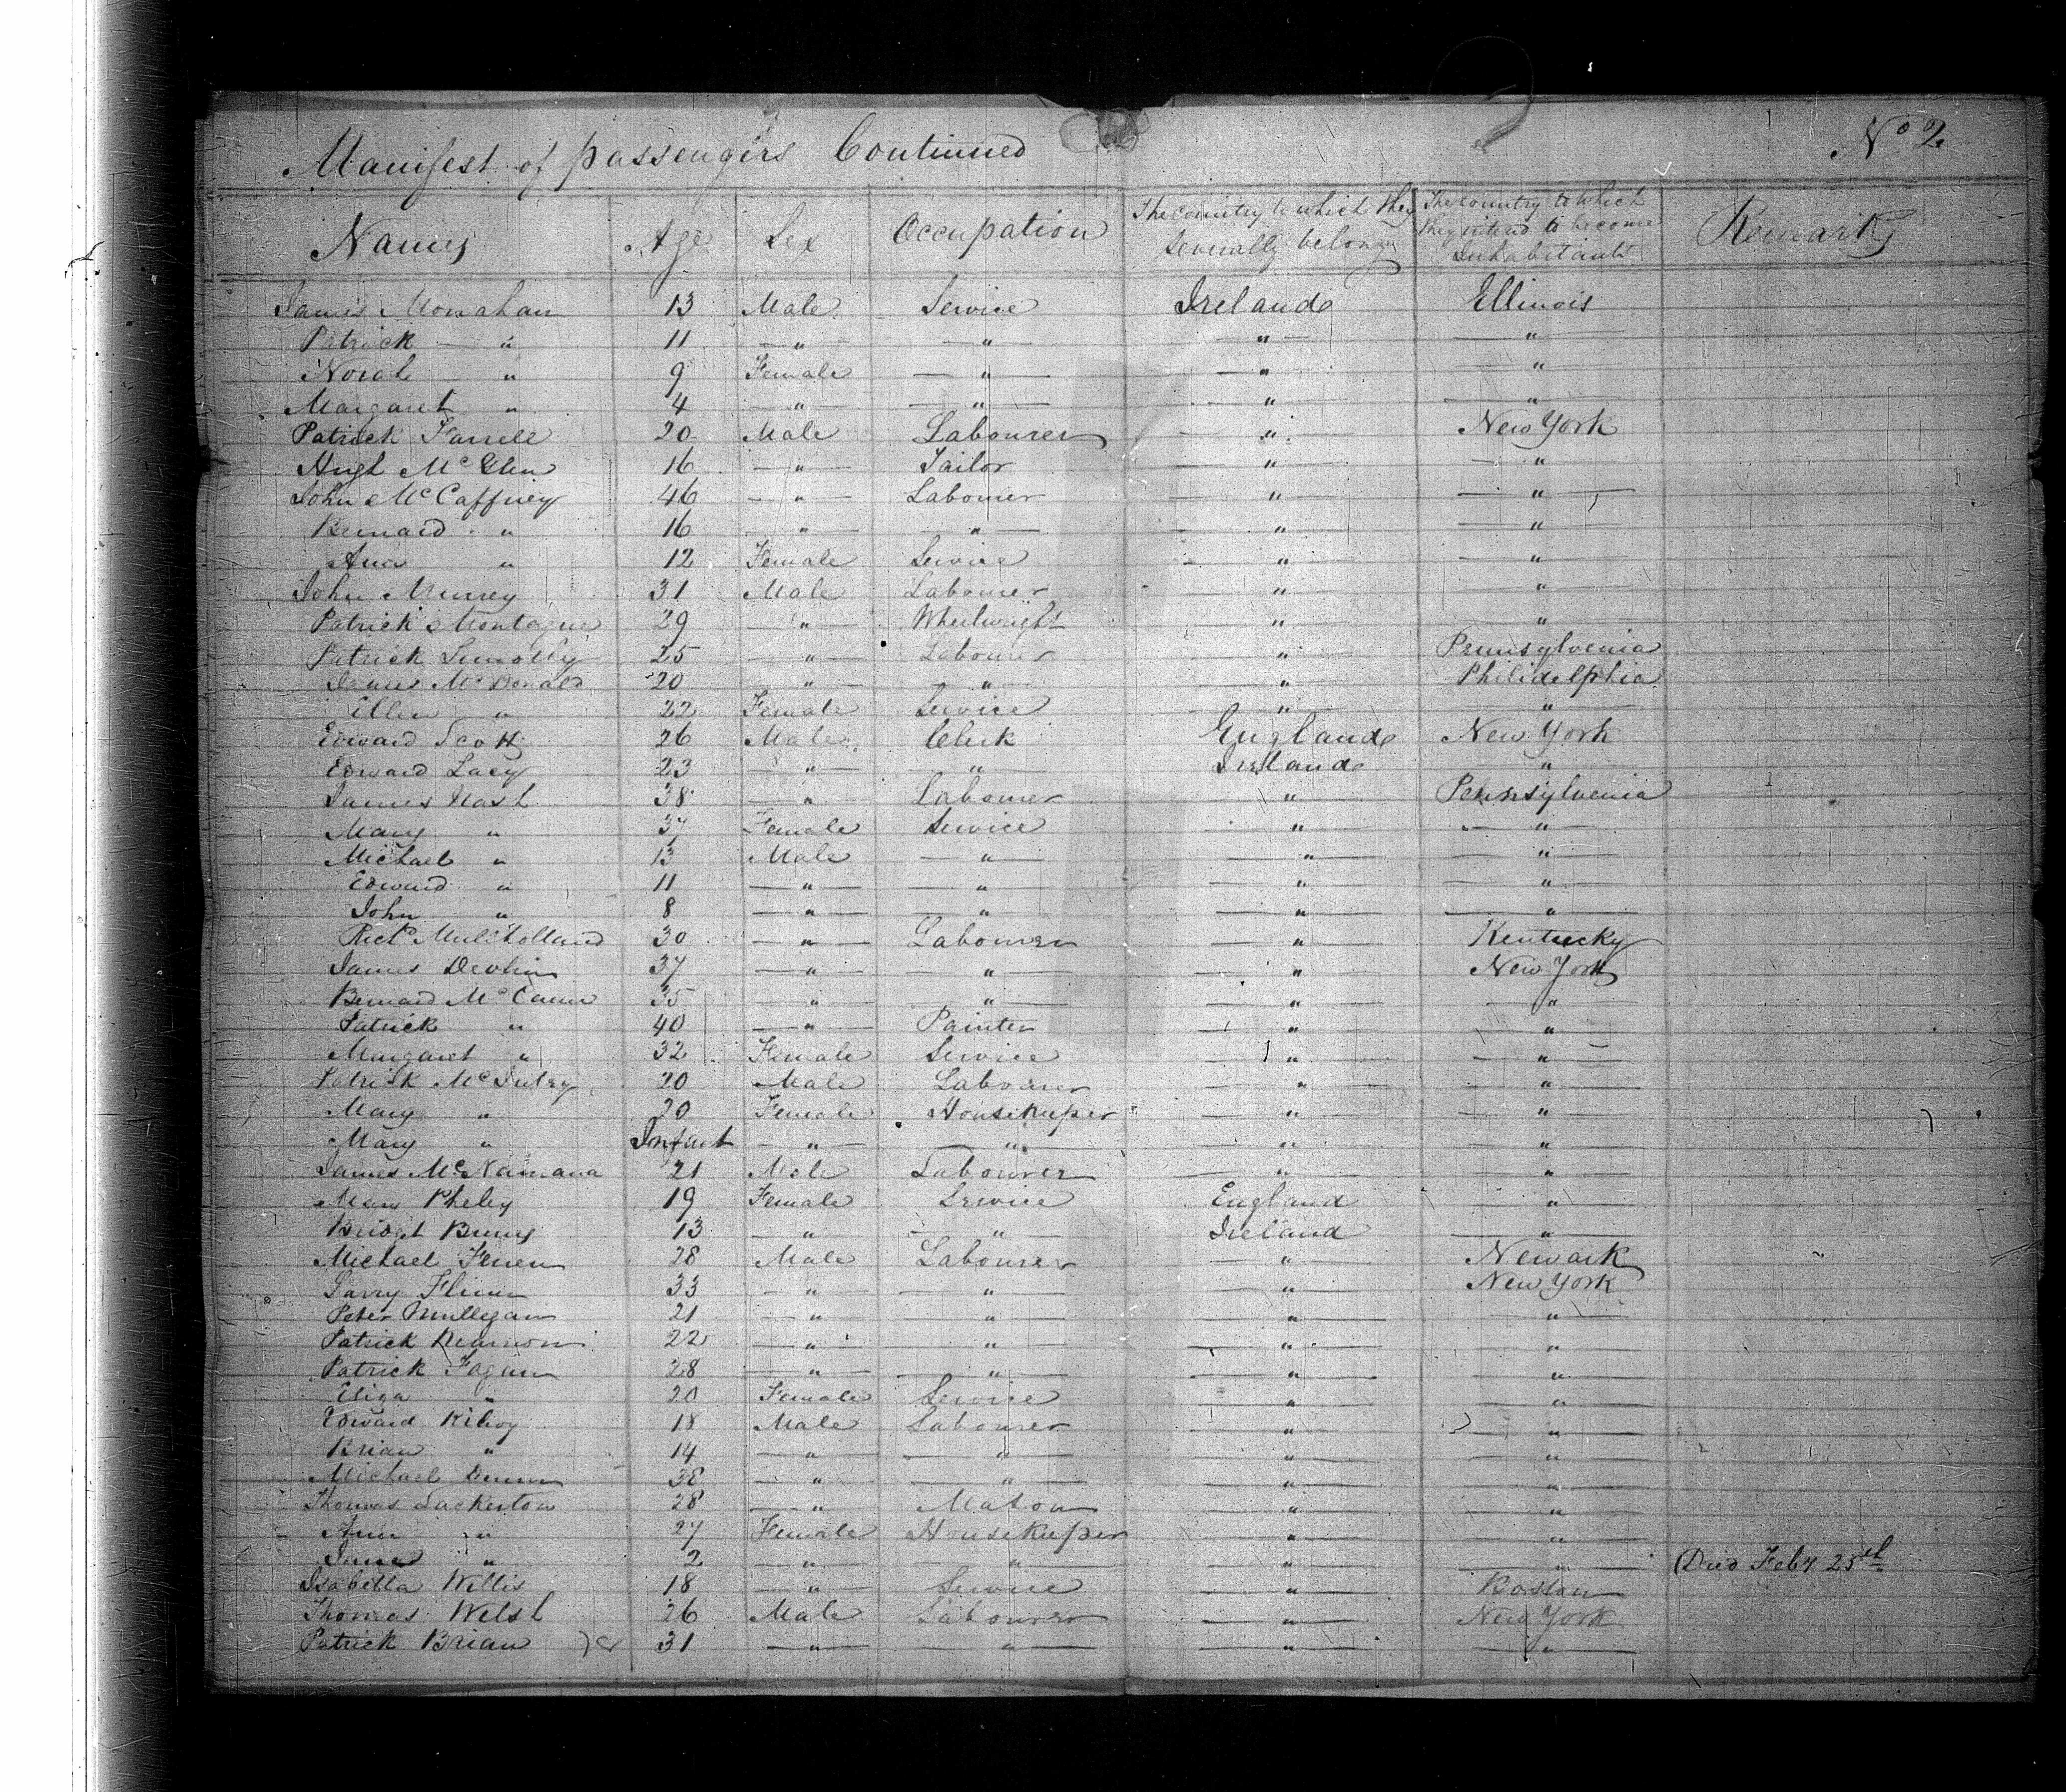 Manifest of passengers Continued No 2
Names Age Sex Occupation The Country to which they severally belong The Country to which they intend to become Inhabitants Remarks
James Monahan 13 Male Service Ireland Ellinois
Patrick " 11 " " " "
Norah " 9 Female " " "
Margaret " 4 " " " "
Patrick Farrell 20 Male Labourer " New York
Hugh 16 " Tailor " "
John McCaffrey 46 " Labourer " "
Bernard " 16 " " " "
Ann " 12 Female Service " "
John Murrey 31 Male Labourer " "
Patrick Montague 29 " Wheelwright " "
Patrick 25 " Labourer " Pennsylvenia
James McDonald 20 " " " Philidelphia
Ellen " 22 Female Service " "
Edward Scott 26 Male Clerk England New York
Edward Lacy 23 " " Ireland "
James Nash 38 " Labourer " Pennsylvenia
Mary " 37 Female Service " "
Michael " 13 Male " " "
Edward " 11 " " " "
John " 8 " " " "
Richd Mulholland 30 " Labourer " Kentucky
James Devlin 37 " " " New York
Bernard McCann 35 " " " "
Patrick " 40 " Painter " "
Margaret " 32 Female Service " "
Patrick 20 Male Labourer " "
Mary " 20 Female Housekeeper " "
Mary " Infant " " " "
James McNamara 21 Male Labourer " "
Mary Pheley 19 Female Service England "
Bridget 13 " " Ireland "
Michael 28 Male Labourer " Newark
Larry Flinn 33 " " " New York
Peter Mullegan 21 " " " "
Patrick 22 " " " "
Patrick Fagan 28 " " " "
Eliza " 20 Female Service " "
Edward Kilroy 18 Male Labourer " "
Brian " 14 " " " "
Michael Dunn 38 " " " "
Thomas 28 " Mason " "
Ann " 27 Female Housekeeper " "
Jane " 2 " " " " Died Feby 25th
Isabella Willis 18 " Service " Boston
Thomas Welsh 26 Male Labourer " New York
Patrick Brian 31 " " " "